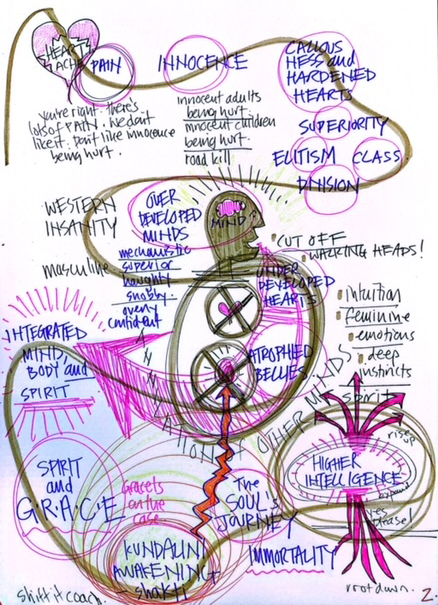 HEART
ACHE
PAIN
INNOCENCE
CALLOUS
NESS and
HARDENED
HEARTS
you're right. there's
lots of PAIN. We don't
like it. Don't like innocence
being hurt.
innocent adults
being hurt
innocent children
being hurt.
road kill
SUPERIORITY
ELITISM
CLASS
DIVISION
WESTERN
INSANITY
masculine
OVER
DEVELOPED
MINDS
mechanistic
superior
haughty
snobby.
overly
confident
MIND
CUT OFF
WALKING HEADS!
UNDER
DEVELOPED
HEARTS
ATROPHIED
BELLIES
intuition
feminine
emotions
deep
instincts
spirit
INTEGRATED
MIND,
BODY and
SPIRIT
OTHER MINDS
rise up
HIGHER
INTELLIGENCE
expand
yes
please!
SPIRIT
and
G.R.A.C.E
Grace is
on the
case
The
SOUL'S
JOURNEY
KUNDALINI
AWAKENING +
Shakti
IMMORTALITY
root down.
shiftitcoach.
2.